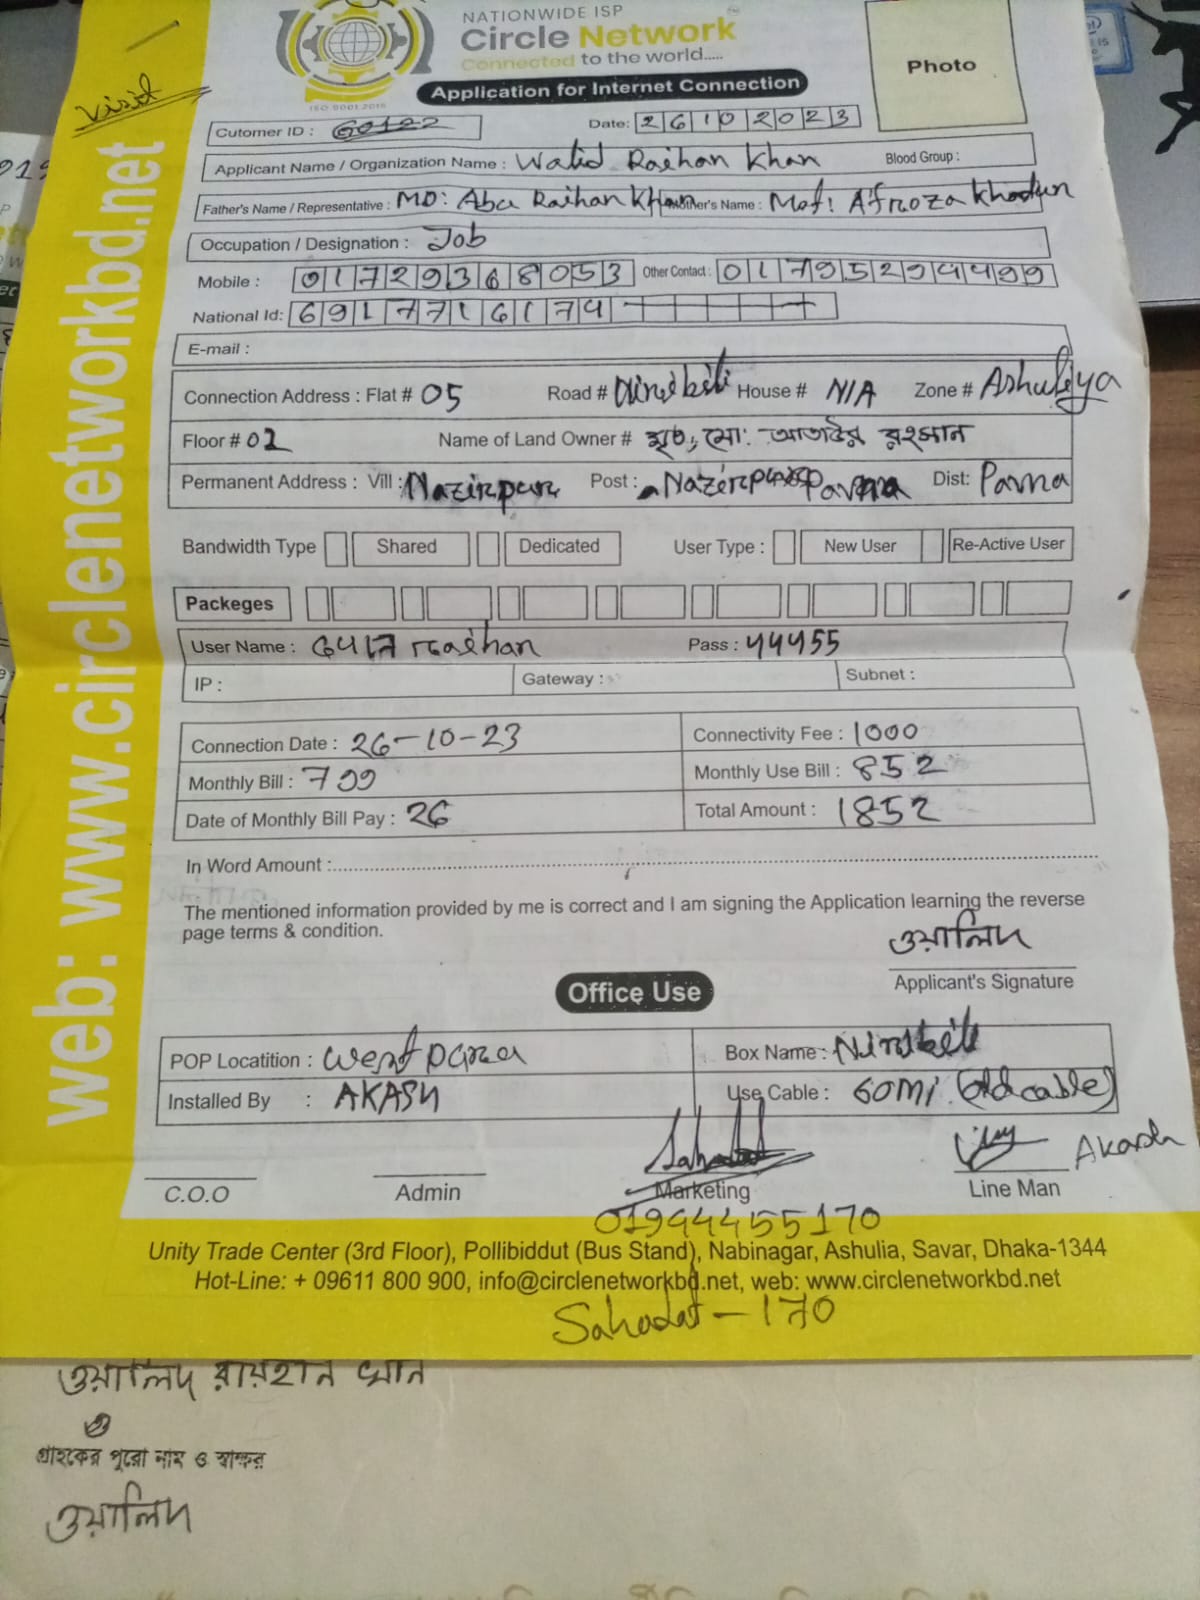 NATIONWIDE ISP
Circle Network
Connected to the world.....
ISO 9001:2015
Application for Internet Connection
Photo
Visit
Cutomer ID : 60122
Date: 26102023
Applicant Name / Organization Name : Walid Raihan Khan Blood Group :
Father's Name / Representative : MD: Abu Raihan Khan Mother's Name : Mst: Afroza Khatun
Occupation / Designation : Job
Mobile : 01729368053 Other Contact : 01795294499
National Id: 6917716174
E-mail :
Connection Address : Flat # 05 Road # House # N/A Zone # Ashuliya
Floor # 02 Name of Land Owner # মৃত, মো: আতাউর রহমান
Permanent Address : Vill : Nazirpur Post : Nazirpur Pavna Dist: Pavna
Bandwidth Type Shared Dedicated User Type : New User Re-Active User
Packeges
User Name : raihan Pass : 44455
IP : Gateway : Subnet :
Connection Date : 26-10-23 Connectivity Fee : 1000
Monthly Bill : 799 Monthly Use Bill : 852
Date of Monthly Bill Pay : 26 Total Amount : 1852
In Word Amount :
The mentioned information provided by me is correct and I am signing the Application learning the reverse
page terms & condition.
ওয়ালিদ
Applicant's Signature
Office Use
POP Locatition : West para Box Name :
Installed By : AKASH Use Cable : 60Mi (old cable)
Sahadat Akash
C.O.O Admin Marketing Line Man
01944455170
Unity Trade Center (3rd Floor), Pollibiddut (Bus Stand), Nabinagar, Ashulia, Savar, Dhaka-1344
Hot-Line: + 09611 800 900, info@circlenetworkbd.net, web: www.circlenetworkbd.net
Sahadat - 170
web: www.circlenetworkbd.net
ওয়ালিদ রায়হান খান
গ্রাহকের পুরো নাম ও স্বাক্ষর
ওয়ালিদ